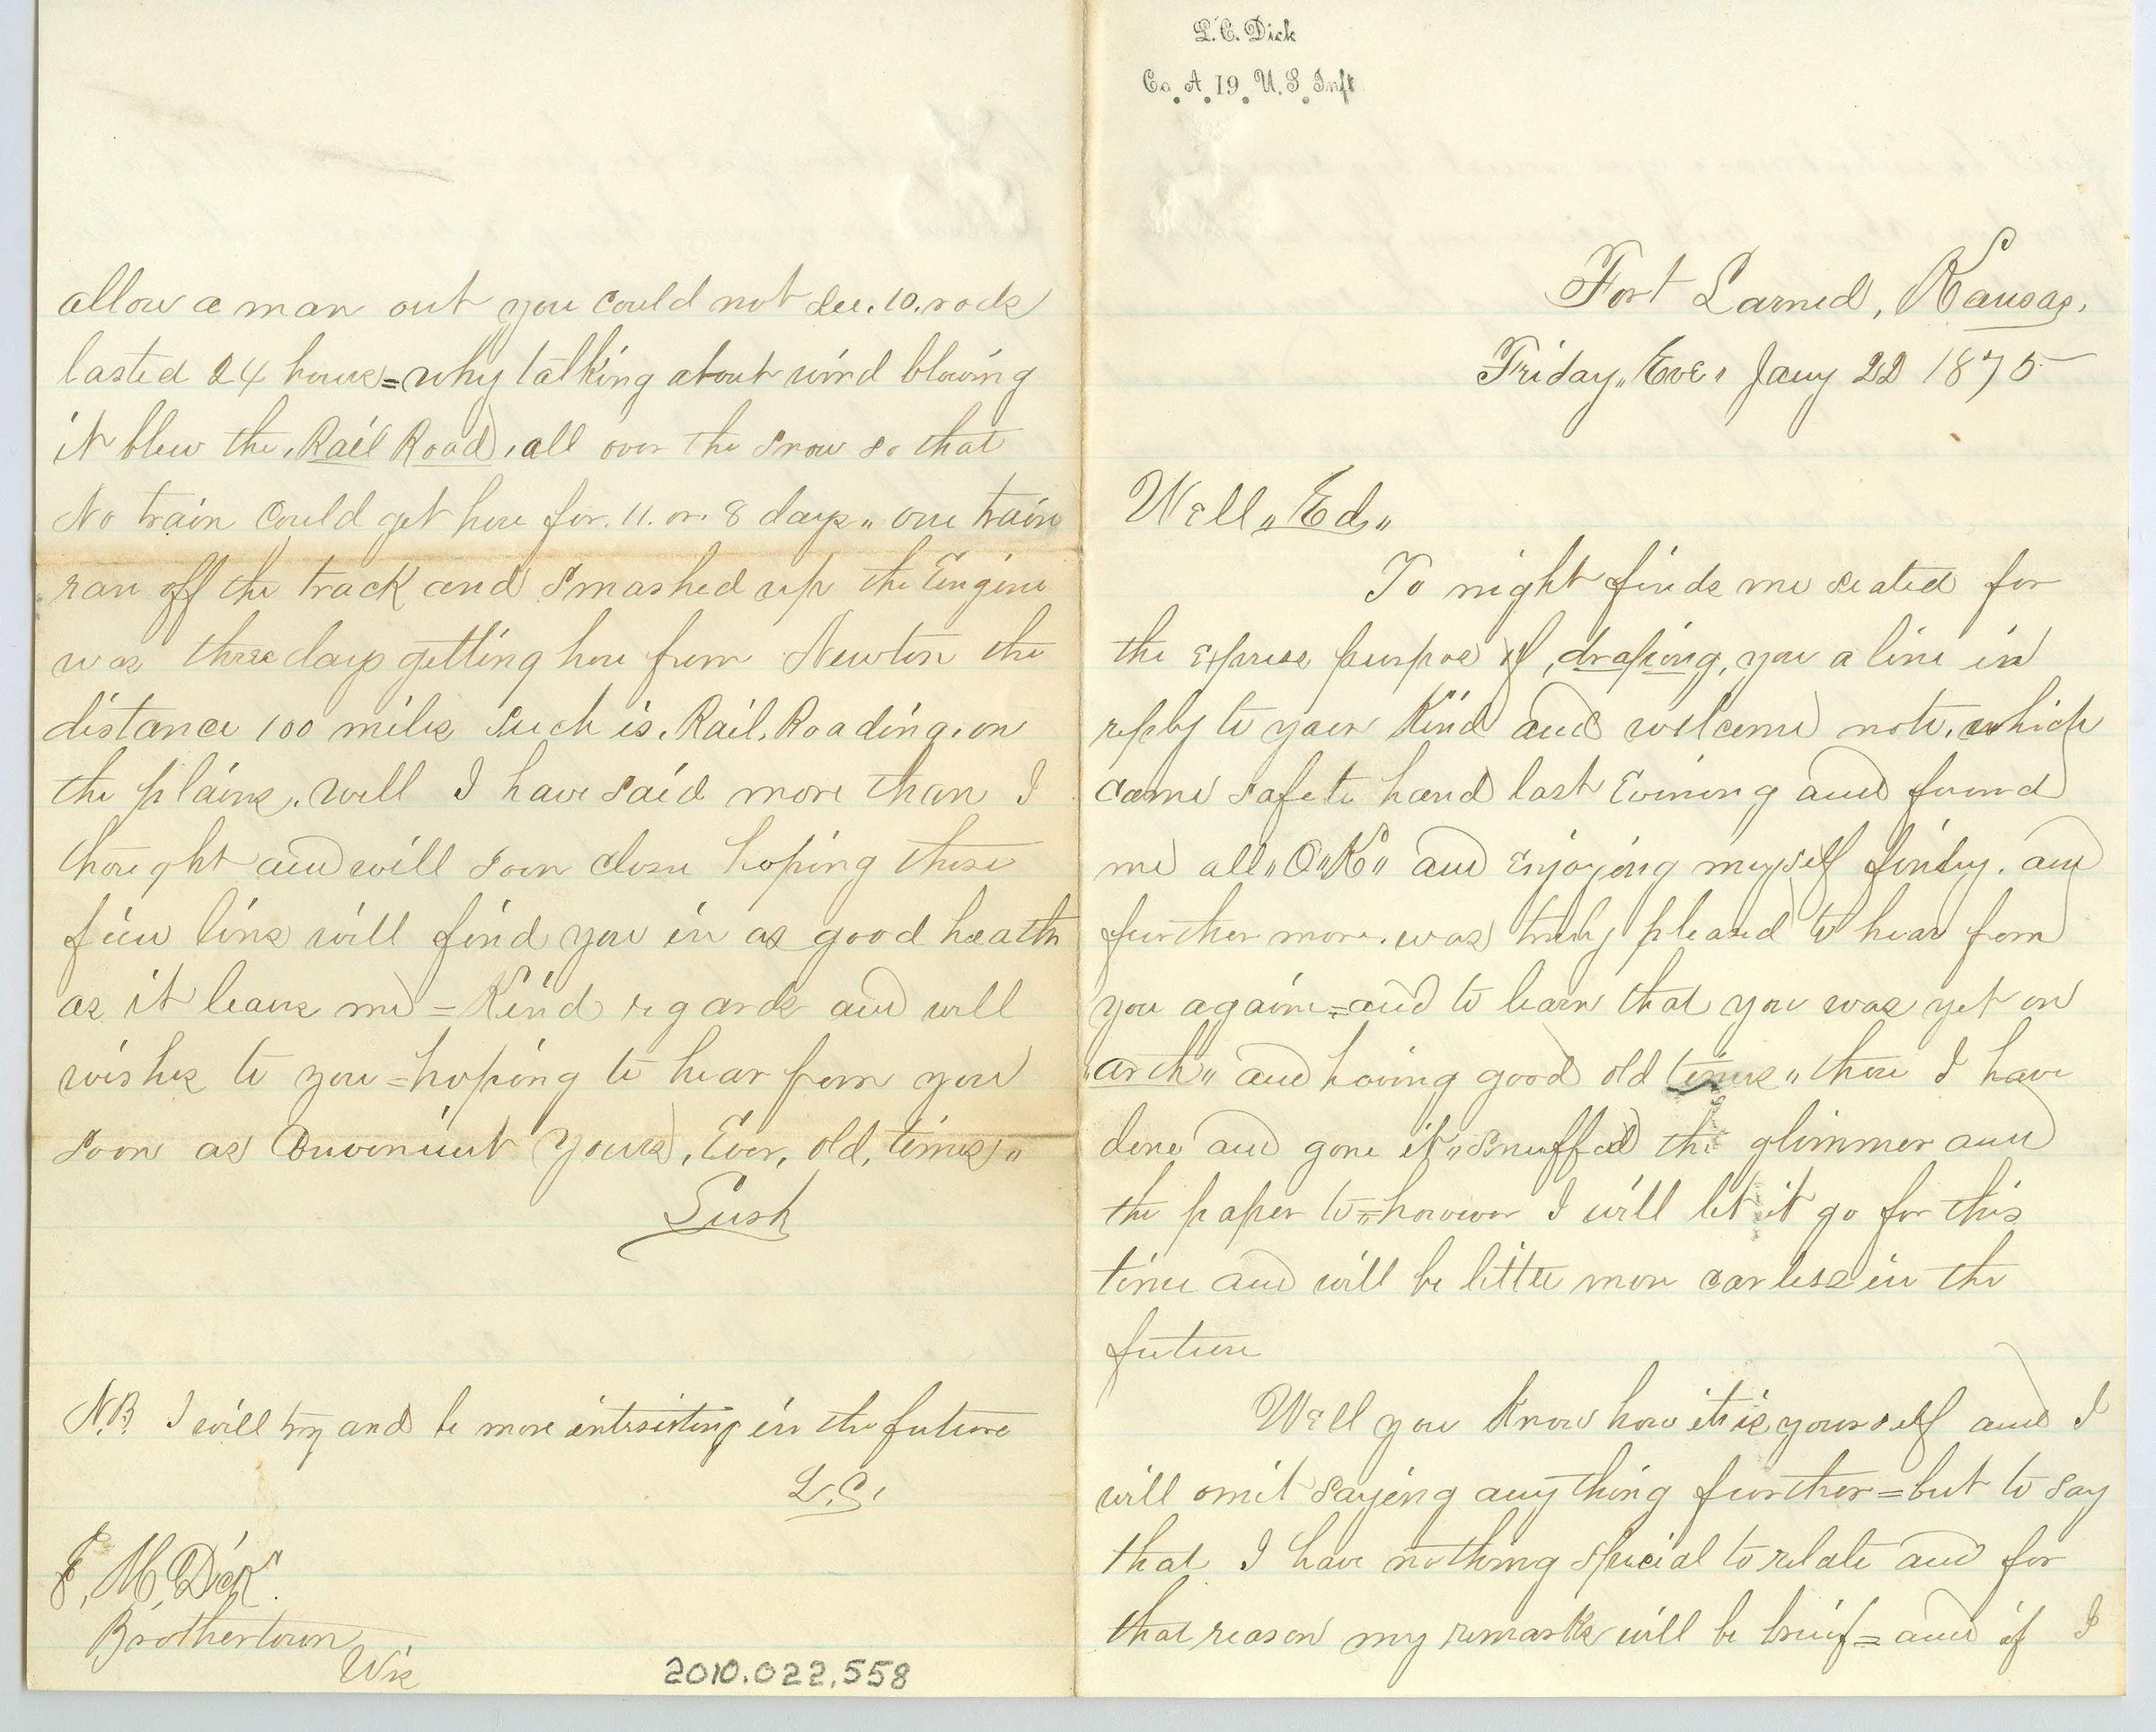 L. C. Dick
Co. A. 19. U. S. Inft
Fort Larned, Kansas,
Friday "Eve" Jany 22 1875
Well "Ed"
To night finds me seated for
the express purpose of, draping, you a line in
reply to your kind and welcome note, which
came safe to hand last Evening and found
me all "O"K" and Enjoying myself finley. and
further more. was truly pleased to hear from
you again = and to learn that you was yet on
"arch" and having good old times" thou I have
done and gone it "snuffed the glimmer and
the paper to = however I will let it go for this
time and will be little more carless in the
future
Well you know how it is yourself and I
will omit saying any thing further = but to say
that I have nothing special to relate and for
that reason my remarks will be brief = and if I
allow a man out you could not see. 10. rods
lasted 24 hours = why talking about wind blowing
it blew the, Rail Road, all over the snow so that
No train could get here for. 11. or. 8 days" one train
ran off the track and smashed up the Engine
was three days getting here from Newton the
distance 100 miles such is, Rail, Roading, on
the plains, well I have said more than I
thought and will soon close hoping these
few lines will find you in as good heath
as it leaves me = Kind regards and well
wishes to you = hoping to hear from you
soon as Convenient Yours, Ever, old, times"
Lush
N.B. I will try and be more intersisting in the future
L.C.
E, M, Dick".
Brothertown
Wis
2010.022.558